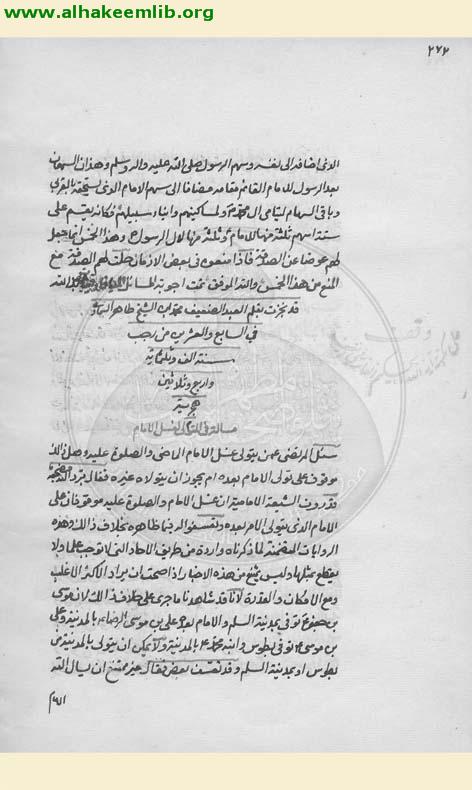 www.alhakeemlib.org
٢٦٢
الذى اضافه الى نفسه وسهم الرسول صلى الله عليه واله وسلم وهذان السهمان
بعد الرسول للامام القائم مقامه مضافا الى سهم الامام الذى يستحقه بالقربى
وباقى السهام ليتامى ال محمد ولمساكينهم وابناء سبيلهم فكانه يقسم على
ستة اسهم ثلثة منها للامام وثلثة منها لال الرسول وهذا الخمس انما جعل
لهم عوضا عن الصدقة فاذا منعوه فى بعض الازمان حلت لهم الصدقة مع
المنع من هذا الخمس والله الموفق تمت اجوبة المسائل
قد نجزت بقلم العبد الضعيف محمد بن الشيخ طاهر السماوى
فى السابع والعشرين من رجب
سنة الف وثلثمائة
واربع وثلاثين
هجرية
مسألة فى المتولى لغسل الامام
سئل المرتضى عمن يتولى غسل الامام الماضى والصلوة عليه وهل ذلك
موقوف على تولى الامام بعده ام يجوز ان يتولاه غيره فقال
قد روت الشيعة الامامية ان غسل الامام والصلوة عليه موقوفان على
الامام الذى يتولى الامر بعده وتعسفوا لما ظاهره بخلاف ذلك وهذه
الروايات المتضمنة لما ذكرناه واردة من طريق الاحاد التى لا توجب علما ولا
يقطع بمثلها وليس يمتنع من هذه الاخبار اذا صحت ان يراد الاكثر الاغلب
ومع الامكان والقدرة لانا قد شاهدنا ما جرى على خلاف ذلك لان موسى
بن جعفر توفى بمدينة السلم والامام بعده على بن موسى الرضا بالمدينة وعلى
بن موسى توفى بطوس وابنه محمد بالمدينة ولا يمكن ان يتولى بالمدينة من
بطوس او بمدينة السلم وقد تعسف بعض فقال غير ممتنع ان يسال الله